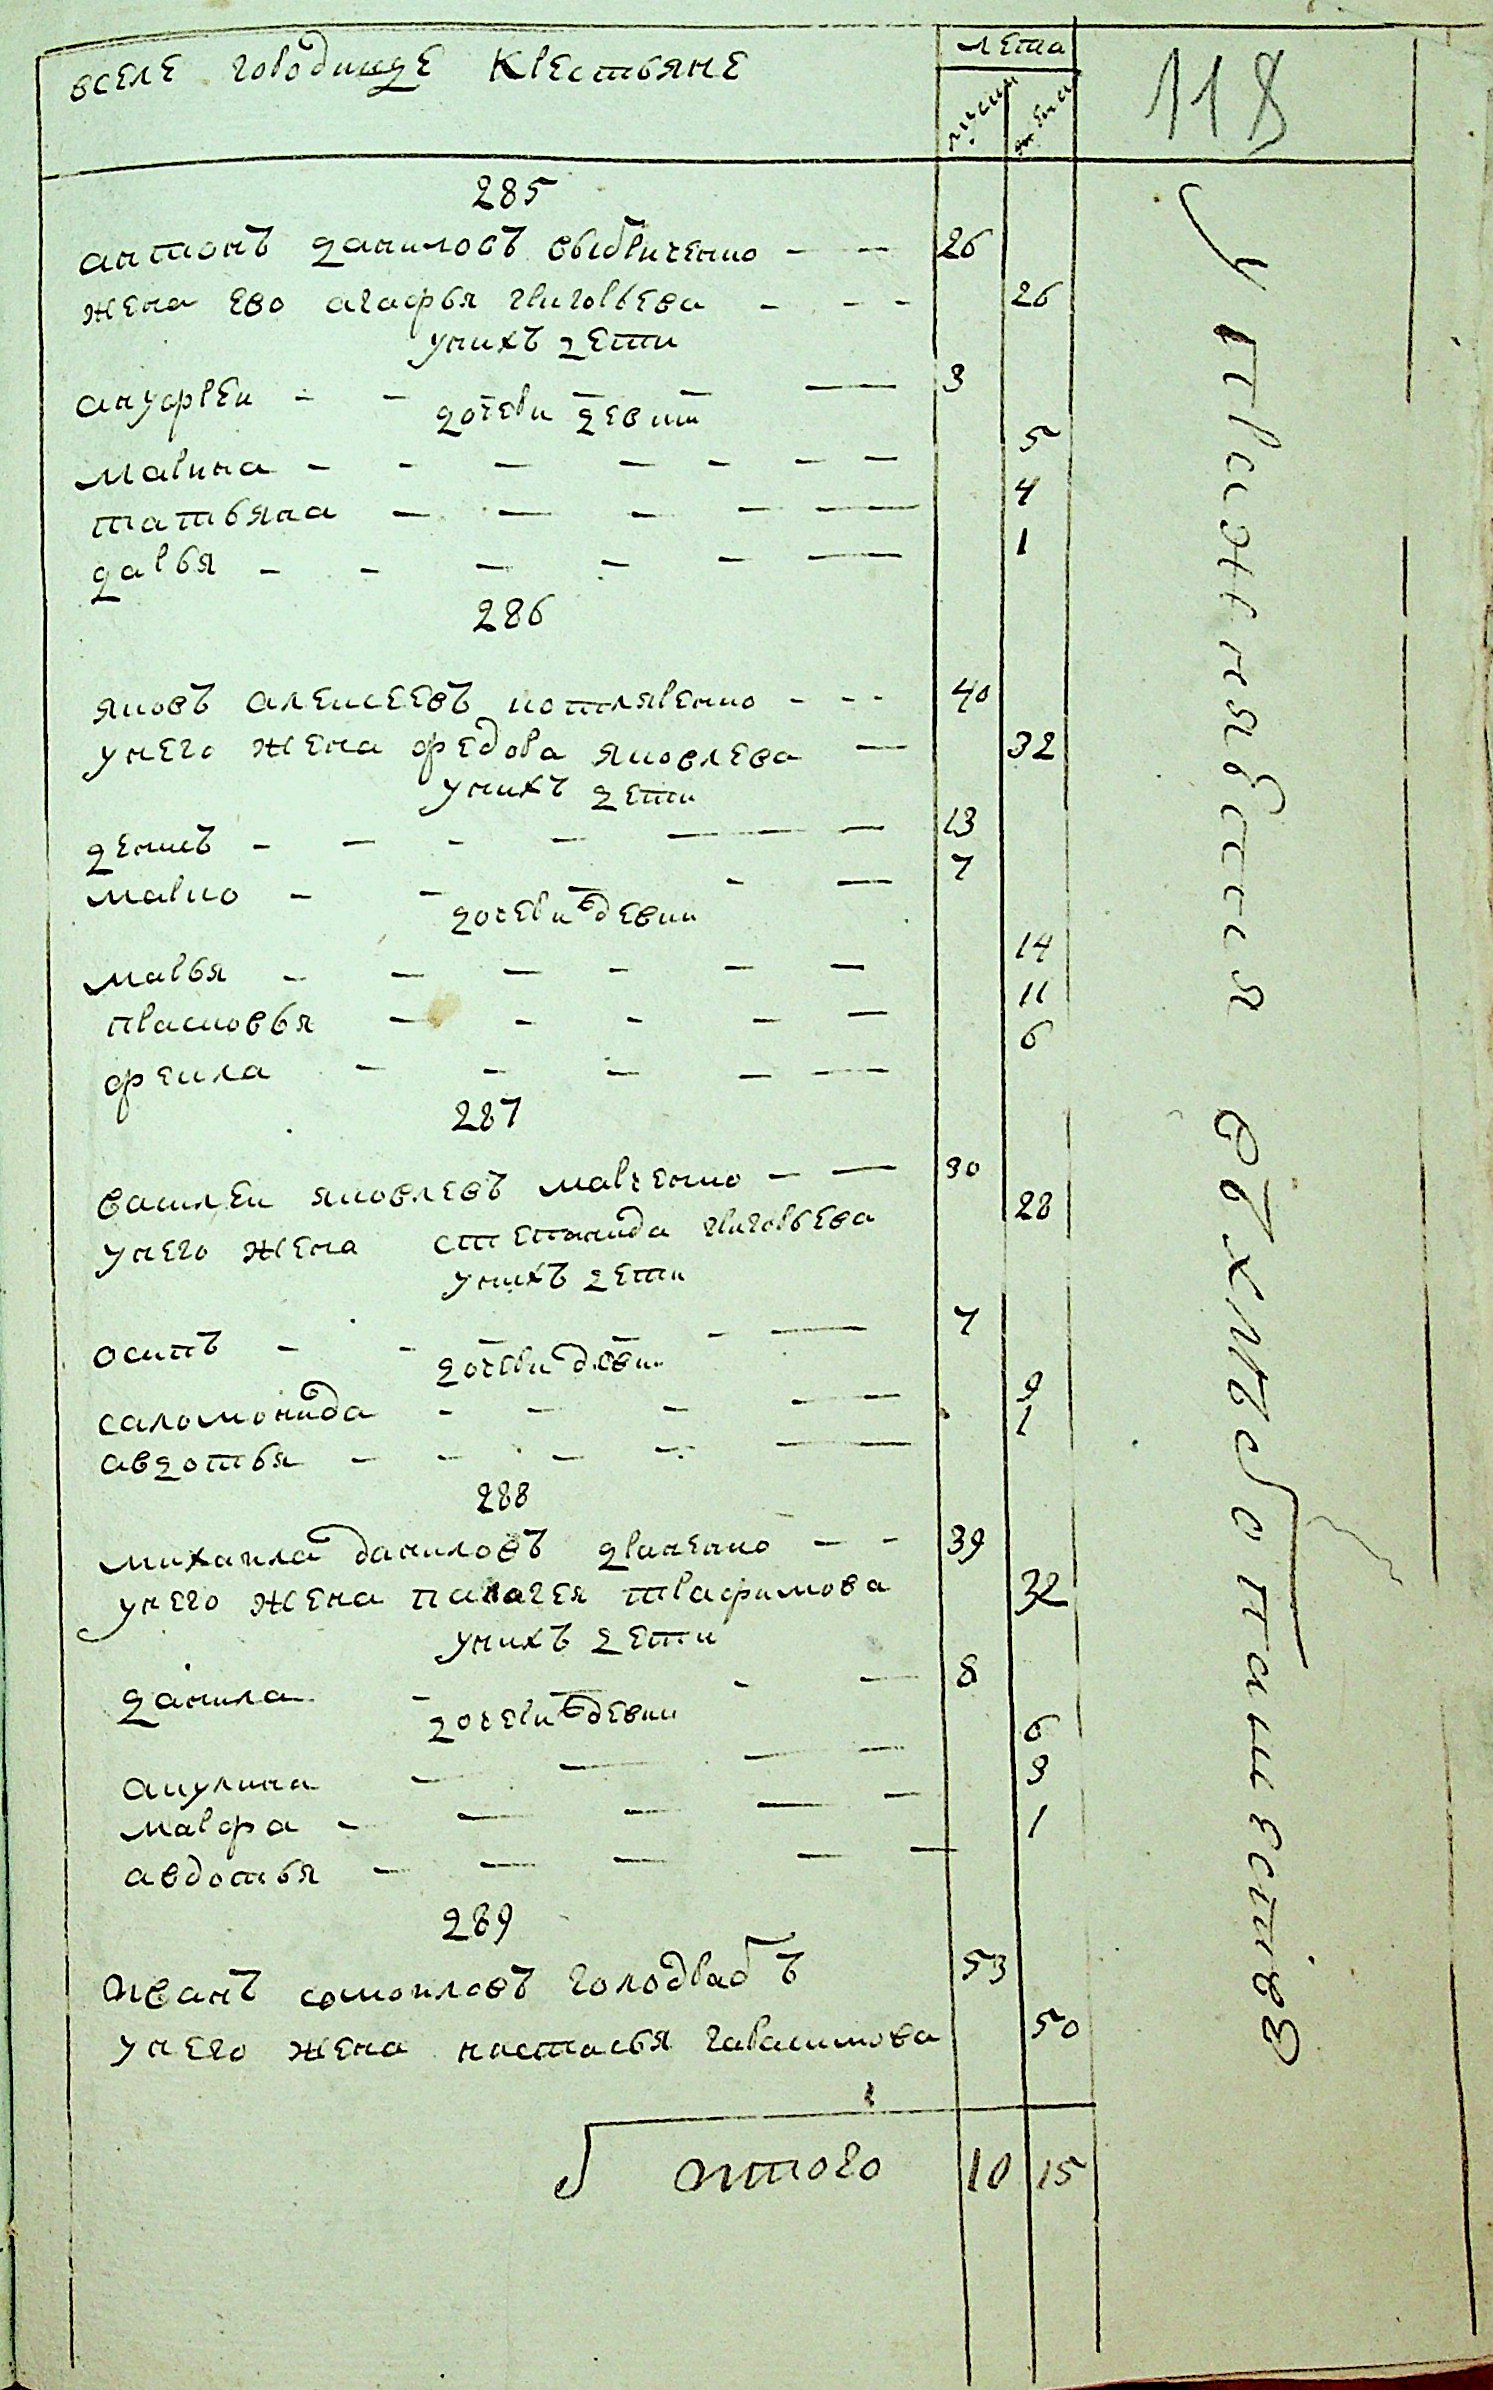 вселе городище крестьяне
лета
мужи
жена
118
285
антонъ даниловъ свидриченко - - - 26
жена ево агафья григорьева - - - 26
унихъ дети
андрей - - - 3
дочери девки
марина - - - - - - - 5
татьяна - - - - - 4
дарья - - - - - - 1
286
яковъ алексеевъ котляренко - - - 40
унего жена федора яковлева - 32
унихъ дети
денисъ - - - - - - - 13
марко - - - - 7
дочери девки
марья - - - - - - 14
прасковья - - - - - 11
фекла - - - - - 6
287
василеи яковлевъ марченко - - 30
унего жена степанида григорьева 28
унихъ дети
осипъ - - - - 7
дочери девки
саломонида - - - - - 9
авдотья - - - - - 1
288
михаила даниловъ драченко - - 39
унего жена палагея трафимова 32
унихъ дети
данила - - - 8
дочери девки
акулина - - - - 6
марфа - - - - - 3
авдотья - - - - - 1
289
иванъ самоиловъ голодрабъ 53
унего жена настасья гарасимова 50
итого 10 15